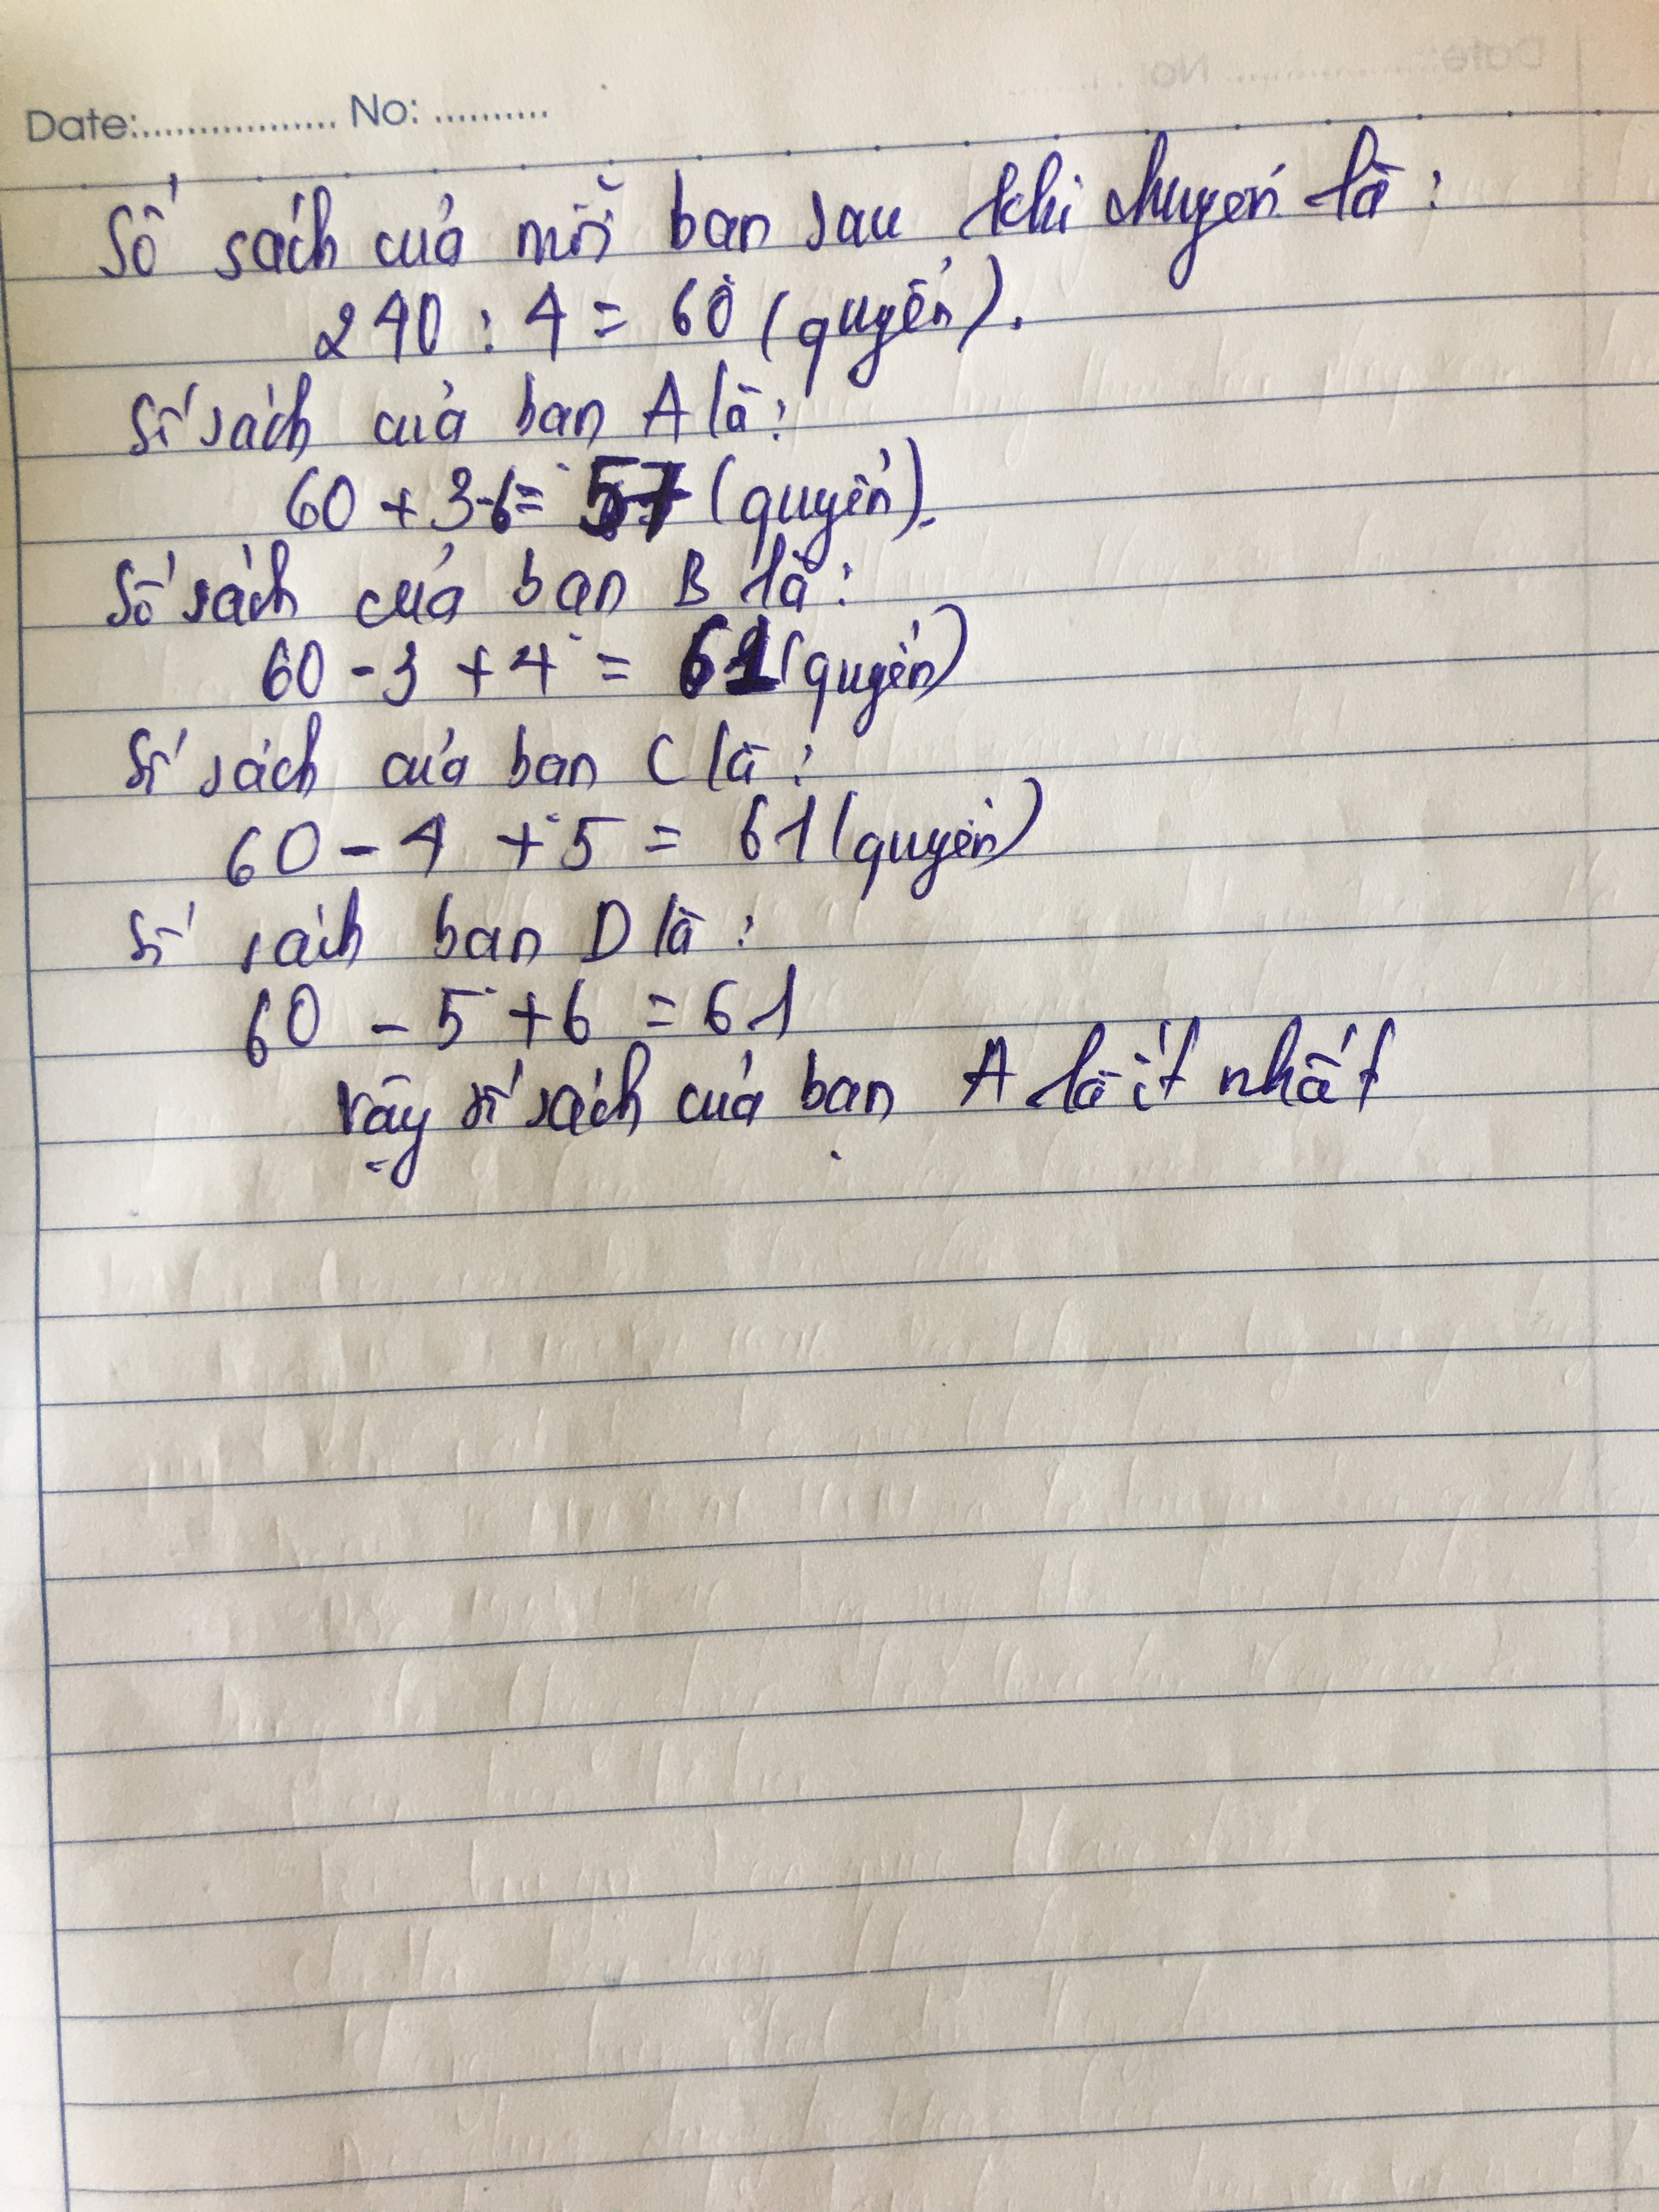 Date:.................. No: ..........
Số sách của mỗi bạn sau khi chuyển là:
240 : 4 = 60 (quyển).
Số sách của bạn A là:
60 + 3-6= 57 (quyển).
Số sách của bạn B là:
60 - 3 + 4 = 61 (quyển)
Số sách của bạn C là:
60 - 4 + 5 = 61 (quyển)
Số sách bạn D là:
60 - 5 + 6 = 61
Vậy số sách của bạn A là ít nhất